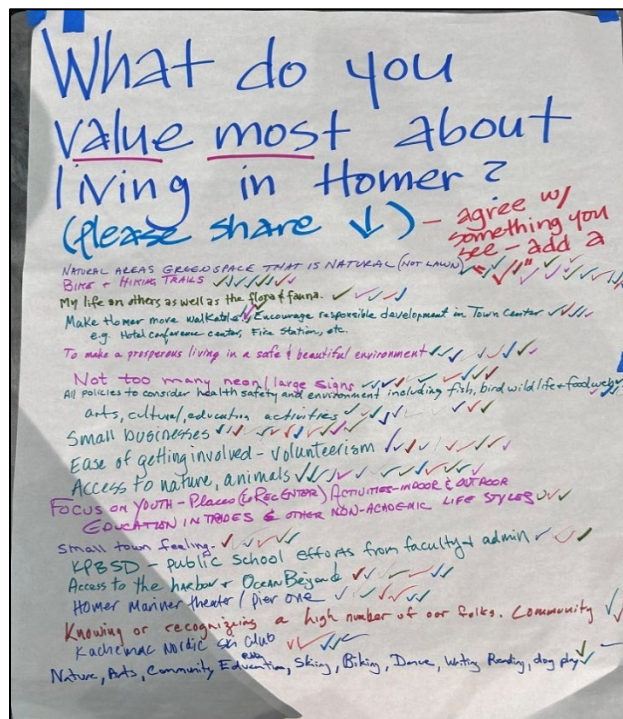 What do you
value most about
living in Homer?
(please share ↓) – agree w/
something you
see – add a "✓"
NATURAL AREAS GREENSPACE THAT IS NATURAL (NOT LAWN)
BIKE + HIKING TRAILS
My life on others as well as the flora & fauna.
Make Homer more walkable. Encourage responsible development in Town Center
e.g. Hotel conference center, Fire Station, etc.
To make a prosperous living in a safe & beautiful environment
Not too many neon/large signs
All policies to consider health safety and environment including fish, bird wildlife + food web
arts, cultural, education activities
Small businesses
Ease of getting involved – volunteerism
Access to nature, animals
FOCUS ON YOUTH – PLACES (& REC CENTER) ACTIVITIES – INDOOR & OUTDOOR
EDUCATION IN TRADES & OTHER NON-ACADEMIC LIFE STYLES
Small town feeling.
KPBSD – public school efforts from faculty + admin
Access to the harbor + Ocean Beyond
Homer Mariner theater / Pier one
Knowing or recognizing a high number of our folks. Community
Kachemac Nordic Ski Club
Nature, Arts, Community Education, Skiing, Biking, Dance, Writing Reading, dog play